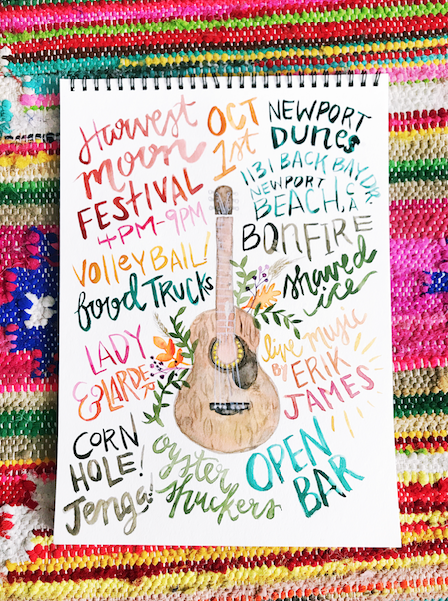 Harvest
moon
FESTIVAL
4PM-9PM
OCT
1st
NEWPORT
Dunes
1131 BACK BAY DR.
NEWPORT
BEACH, CA
BONFIRE
VOLLEYBALL!
food TRUCKS
shaved
ice
LADY
& LARDER
live music
BY ERIK
JAMES
CORN
HOLE!
Jenga!
oyster
shuckers
OPEN
BAR